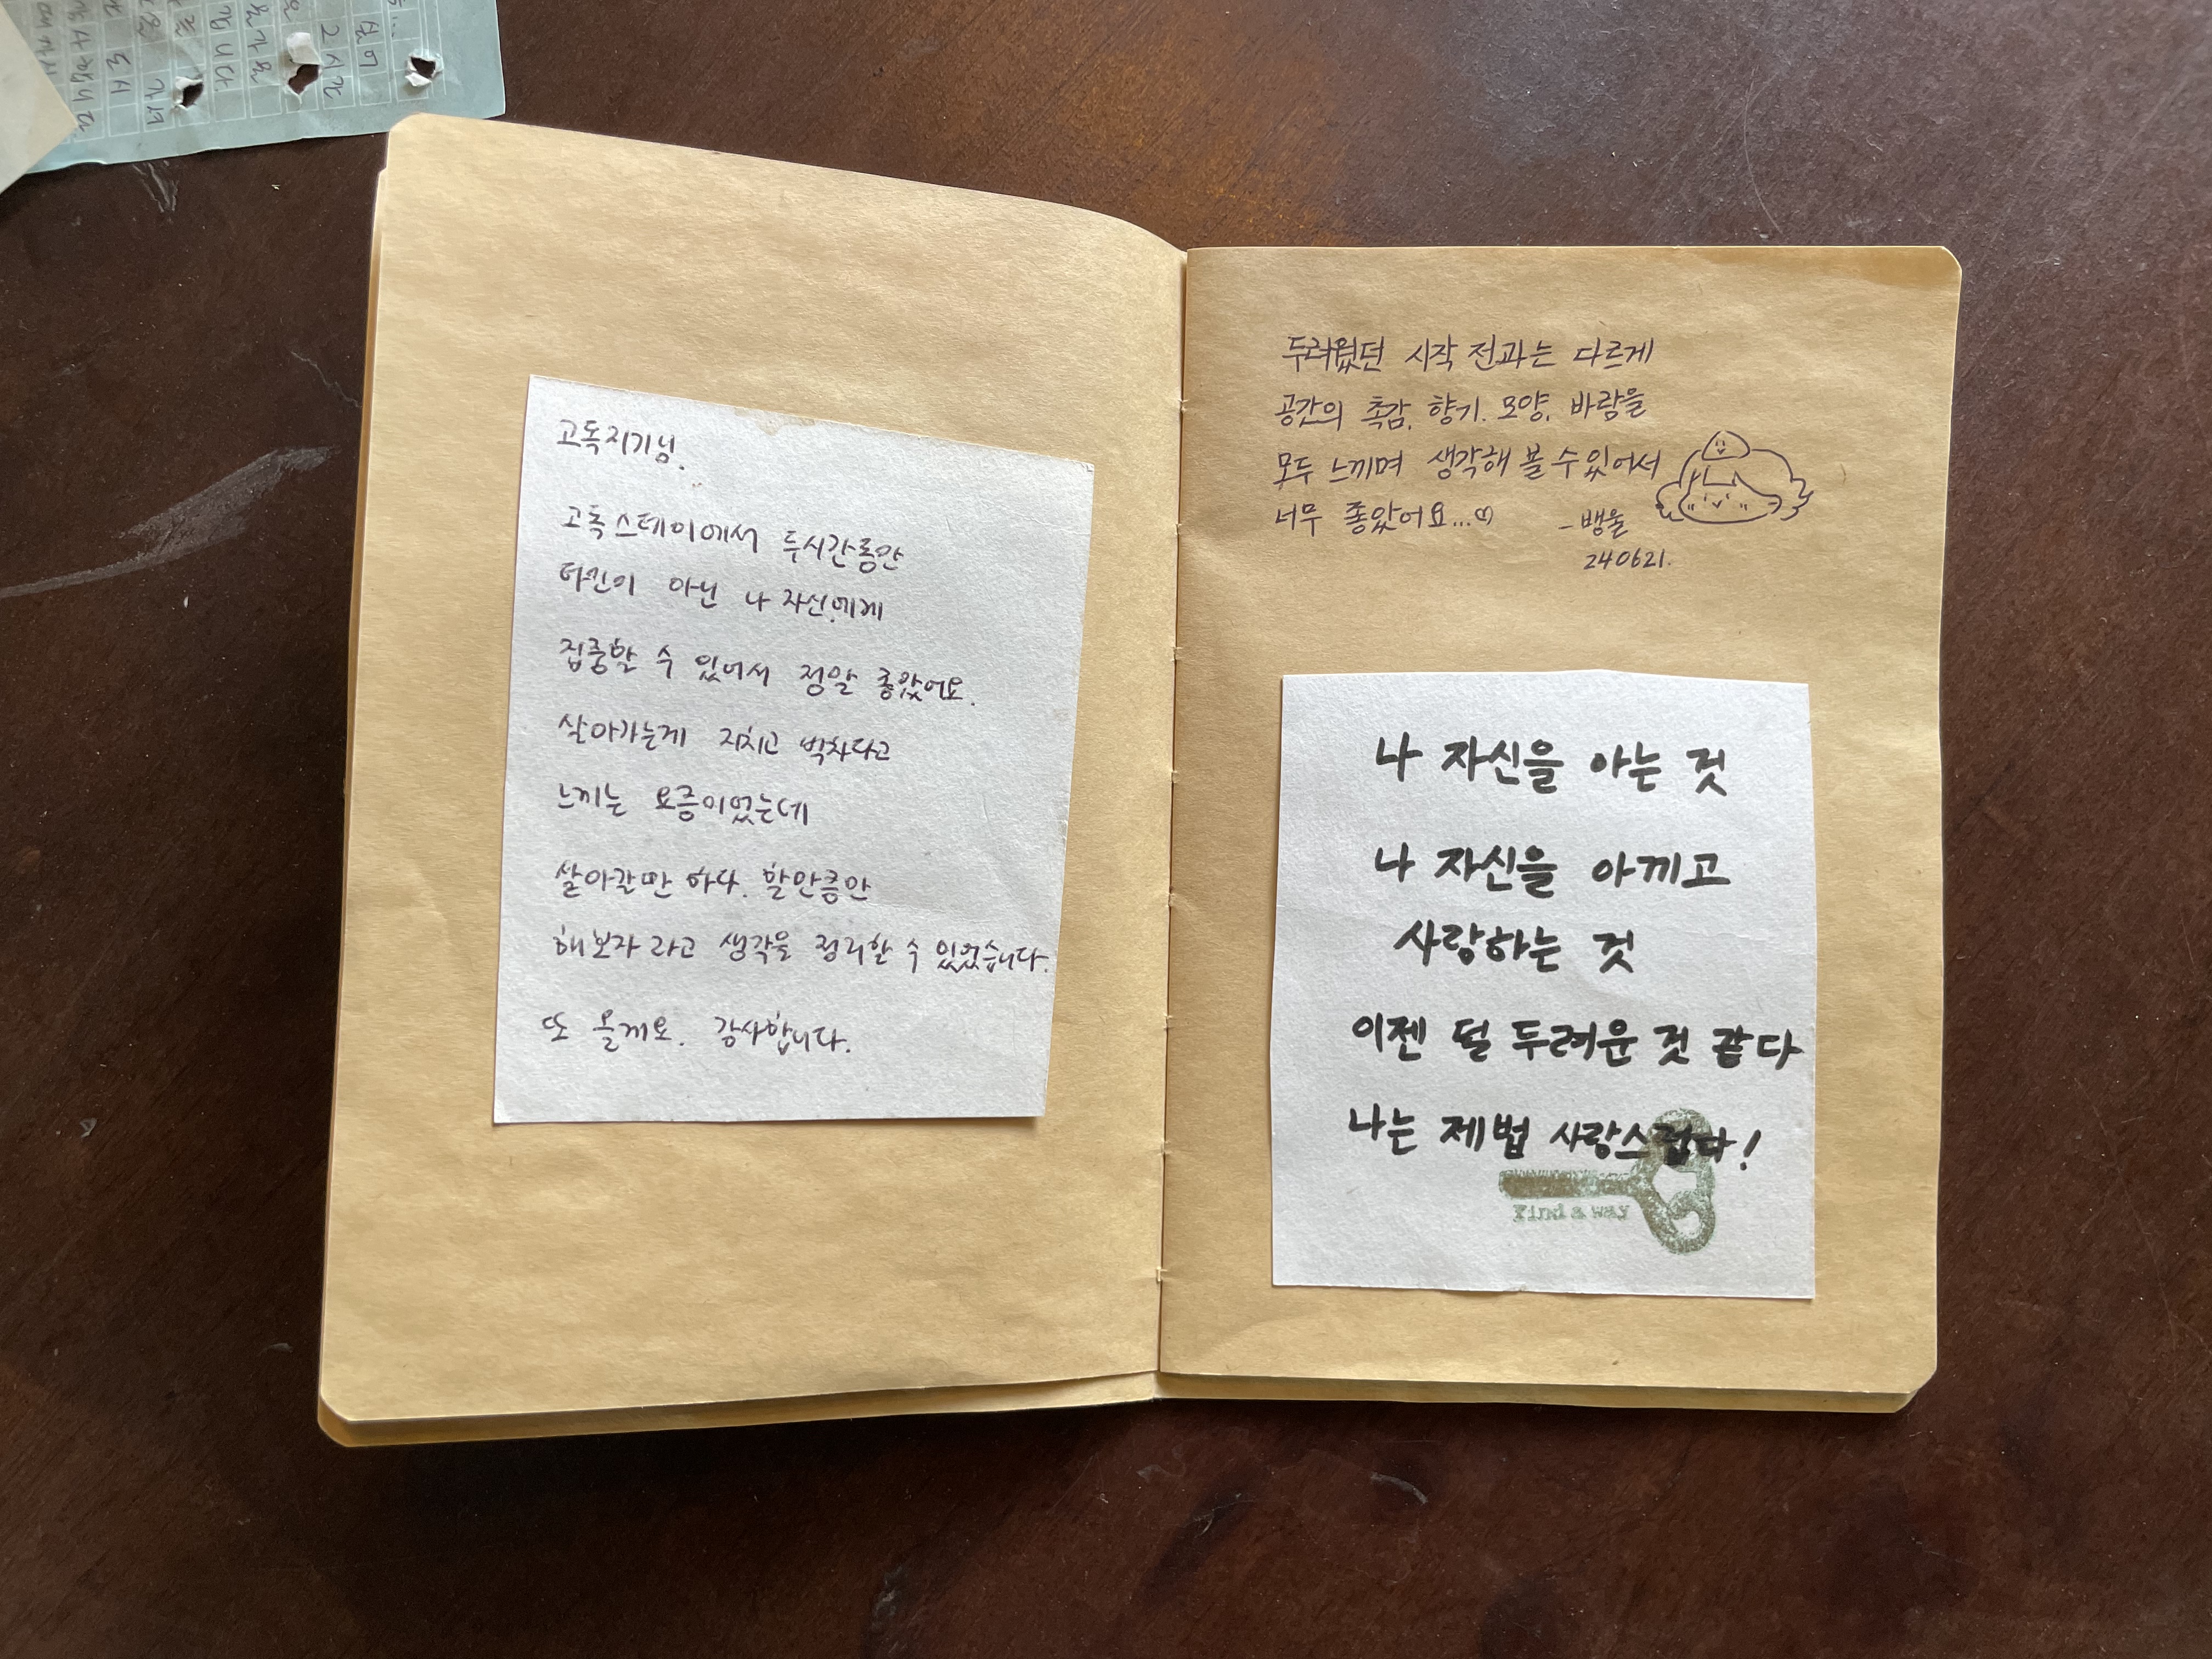 고독지기님.
고독스테이에서 두시간동안
타인이 아닌 나 자신에게
집중할 수 있어서 정말 좋았어요.
살아가는게 지치고 벅차다고
느끼는 요즘이었는데
살아갈만 하다. 할만큼만
해보자 라고 생각을 정리할 수 있었습니다.
또 올게요. 감사합니다.
두려웠던 시작 전과는 다르게
공간의 촉감, 향기. 모양, 바람을
모두 느끼며 생각해 볼 수 있어서
너무 좋았어요...♡
- 뱅울
240621.
나 자신을 아는 것
나 자신을 아끼고
사랑하는 것
이젠 덜 두려운 것 같다
나는 제법 사랑스럽다!
Find a way